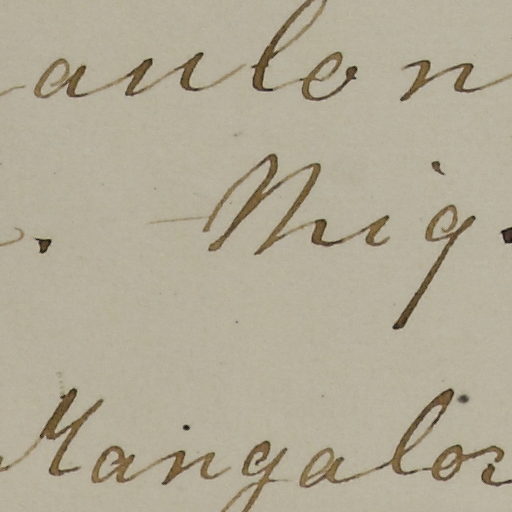 aulon
. Miq.
Mangalor